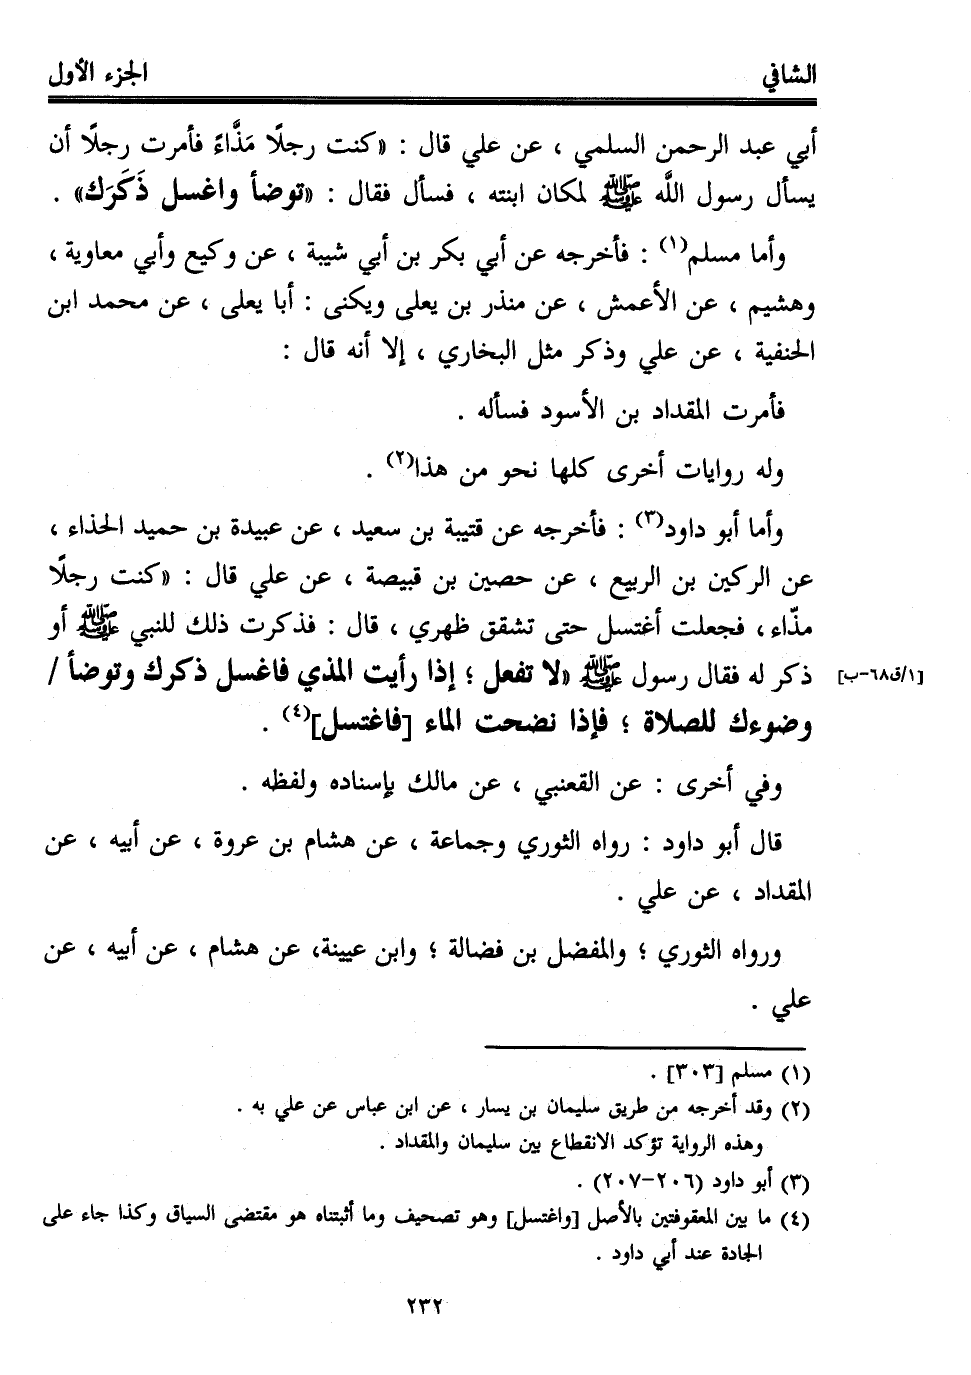 الشافي
الجزء الأول
أبي عبد الرحمن السلمي ، عن علي قال : «كنت رجلًا مَذَّاءً فأمرت رجلًا أن
يسأل رسول اللَّه ﷺ لمكان ابنته ، فسأل فقال : «توضأ واغسل ذَكَرَك» .
وأما مسلم(١) : فأخرجه عن أبي بكر بن أبي شيبة ، عن وكيع وأبي معاوية ،
وهشيم ، عن الأعمش ، عن منذر بن يعلى ويكنى : أبا يعلى ، عن محمد ابن
الحنفية ، عن علي وذكر مثل البخاري ، إلا أنه قال :
فأمرت المقداد بن الأسود فسأله .
وله روايات أخرى كلها نحو من هذا(٢) .
وأما أبو داود(٣) : فأخرجه عن قتيبة بن سعيد ، عن عبيدة بن حميد الحذاء ،
عن الركين بن الربيع ، عن حصين بن قبيصة ، عن علي قال : «كنت رجلًا
مذّاء، فجعلت أغتسل حتى تشقق ظهري ، قال : فذكرت ذلك للنبي ﷺ أو
ذكر له فقال رسول ﷺ «لا تفعل ؛ إذا رأيت المذي فاغسل ذكرك وتوضأ / [١/ق٦٨-ب]
وضوءك للصلاة ؛ فإذا نضحت الماء [فاغتسل](٤) .
وفي أخرى : عن القعنبي ، عن مالك بإسناده ولفظه .
قال أبو داود : رواه الثوري وجماعة ، عن هشام بن عروة ، عن أبيه ، عن
المقداد ، عن علي .
ورواه الثوري ؛ والمفضل بن فضالة ؛ وابن عيينة، عن هشام ، عن أبيه ، عن
علي .
(١) مسلم [٣٠٣] .
(٢) وقد أخرجه من طريق سليمان بن يسار ، عن ابن عباس عن علي به .
وهذه الرواية تؤكد الانقطاع بين سليمان والمقداد .
(٣) أبو داود (٢٠٦-٢٠٧) .
(٤) ما بين المعقوفتين بالأصل [واغتسل] وهو تصحيف وما أثبتناه هو مقتضى السياق وكذا جاء على
الجادة عند أبي داود .
٢٣٢